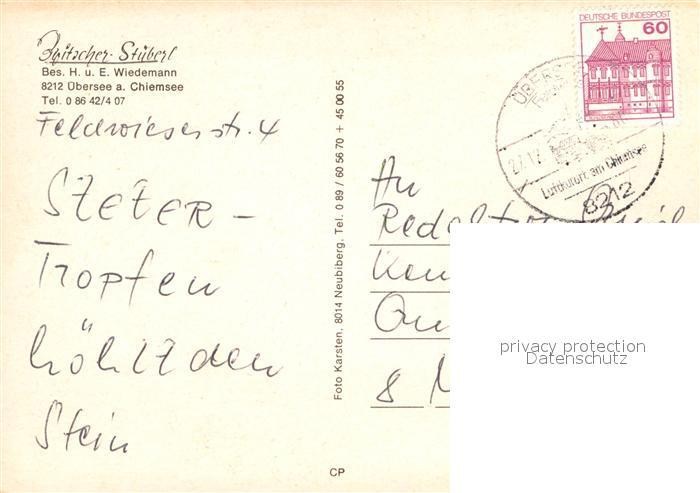 Zwitscher-Stüberl
Bes. H. u. E. Wiedemann
8212 Übersee a. Chiemsee
Tel. 0 86 42/4 07
Feldwieserstr. 4
STETER –
Tropfen
höhlt den
Stein
Foto Karsten, 8014 Neubiberg, Tel. 0 89 / 60 56 70 + 45 00 55
CP
DEUTSCHE BUNDESPOST
60
ÜBERSEE
27.12
Luftkurort am Chiemsee
8212
An
8 M
privacy protection
Datenschutz